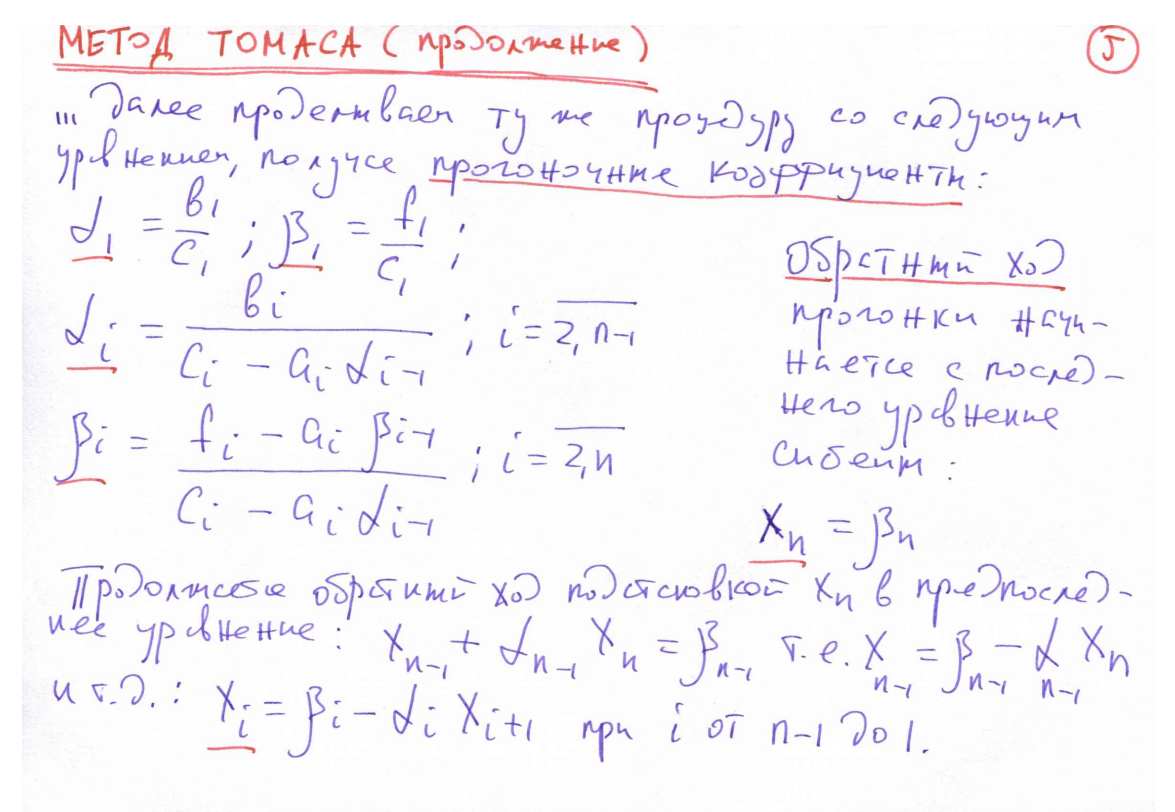 МЕТОД ТОМАСА (продолжение) 5
... далее проделываем ту же процедуру со следующим
уравнением, получая прогоночные коэффициенты:
α₁ = b₁/c₁ ; β₁ = f₁/c₁ ;
αᵢ = bᵢ/(cᵢ - aᵢ αᵢ₋₁) ; i = \overline{2, n-1}
βᵢ = (fᵢ - aᵢ βᵢ₋₁)/(cᵢ - aᵢ αᵢ₋₁) ; i = \overline{2, n}
Обратный ход
прогонки начи-
нается с послед-
него уравнения
системы :
xₙ = βₙ
Продолжаем обратный ход подстановкой xₙ в предпослед-
нее уравнение : xₙ₋₁ + αₙ₋₁ xₙ = βₙ₋₁ т.е. xₙ₋₁ = βₙ₋₁ - αₙ₋₁ xₙ
и т.д. : xᵢ = βᵢ - αᵢ xᵢ₊₁ при i от n-1 до 1.